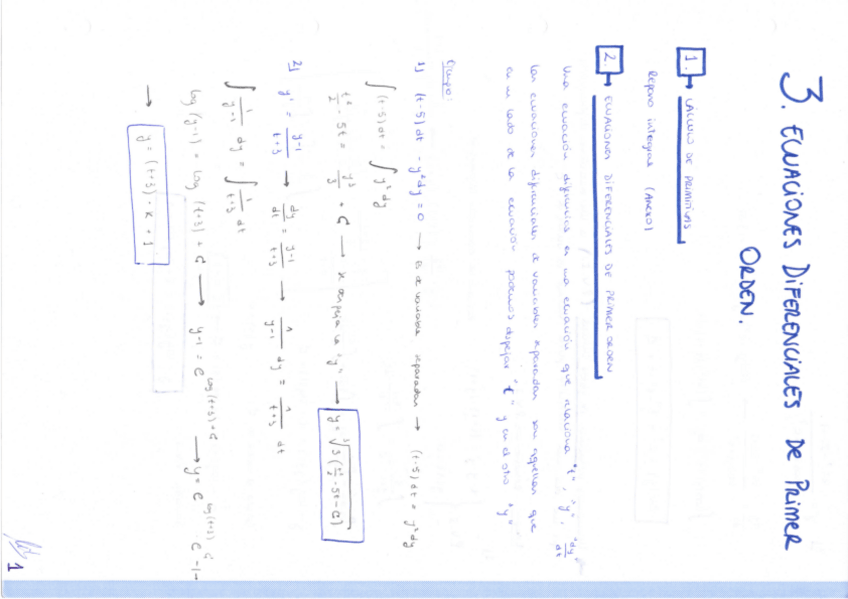 3. ECUACIONES DIFERENCIALES DE PRIMER
ORDEN.
1. → CÁLCULO DE PRIMITIVAS
Repaso integrales (ANEXO)
2. → ECUACIONES DIFERENCIALES DE PRIMER ORDEN
Una ecuación diferencial es una ecuación que relaciona "t", "y", "dy/dt"
Las ecuaciones diferenciales de variables separadas son aquellas que
en un lado de la ecuación podemos despejar "t" y en el otro "y"
Ejemplo:
1) (t-5)dt - y²dy = 0 → Es de variables separadas → (t-5)dt = y²dy
∫(t-5)dt = ∫y²dy
t²/2 - 5t = y³/3 + C → se despeja la "y" → y = ∛3(t²/2 - 5t - C)
2) y' = y-1/t+3 → dy/dt = y-1/t+3 → 1/y-1 dy = 1/t+3 dt
∫ 1/y-1 dy = ∫ 1/t+3 dt
log (y-1) = log (t+3) + C → y-1 = e^log(t+3)+C → y = e^log(t+3) · e^C -1 →
→ y = (t+3) · k + 1
1